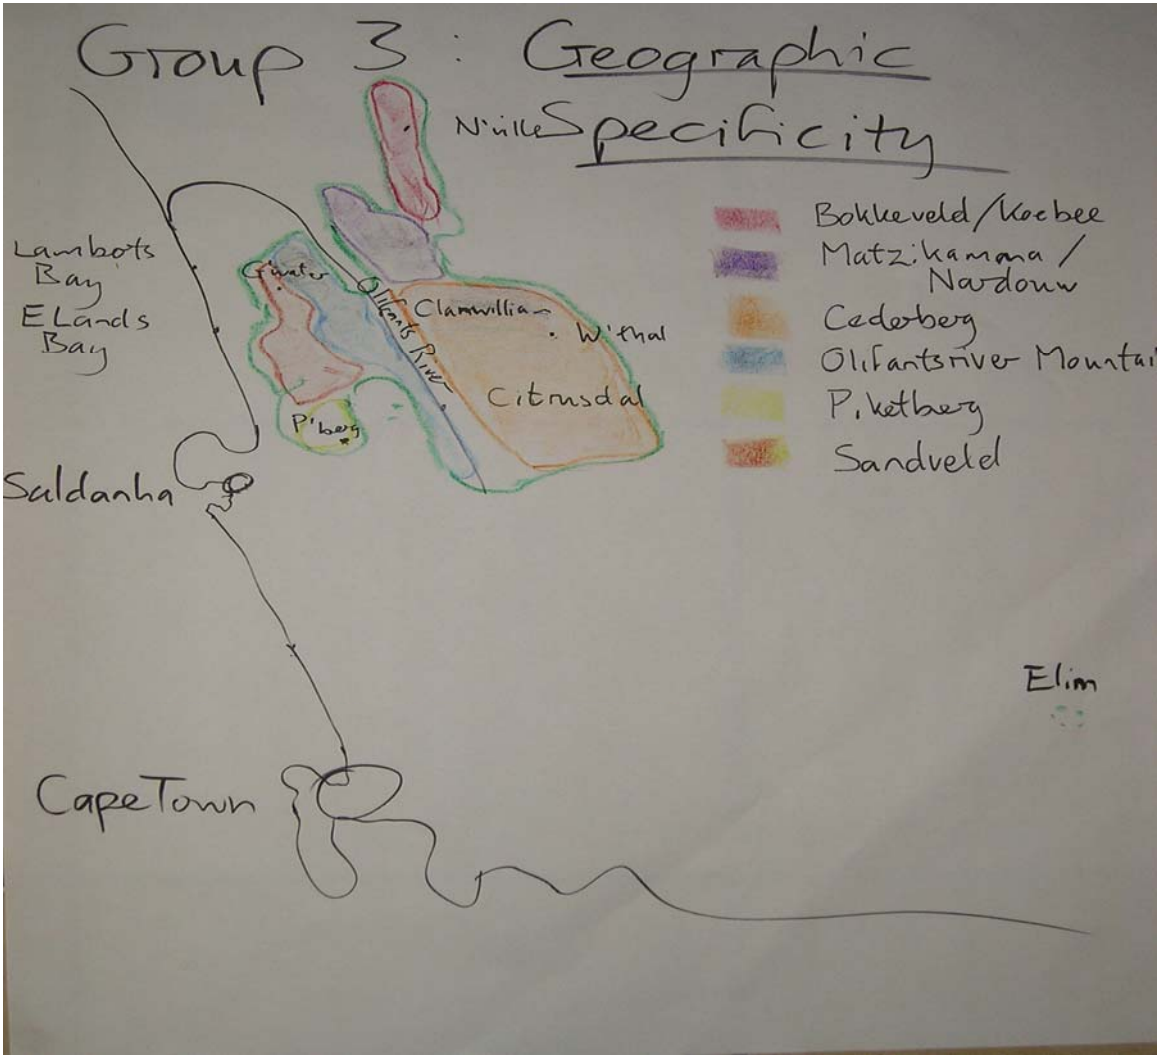 Group 3 : Geographic
Specificity
N'ville
Bokkeveld/Koebee
Matzikamma /
Nardouw
Cederberg
Olifantsriver Mountai
Piketberg
Sandveld
Lambots
Bay
ELands
Bay
G'water
Olifants River
Clanwilliam
W'thal
Citrusdal
P'berg
Saldanha
Elim
Cape Town